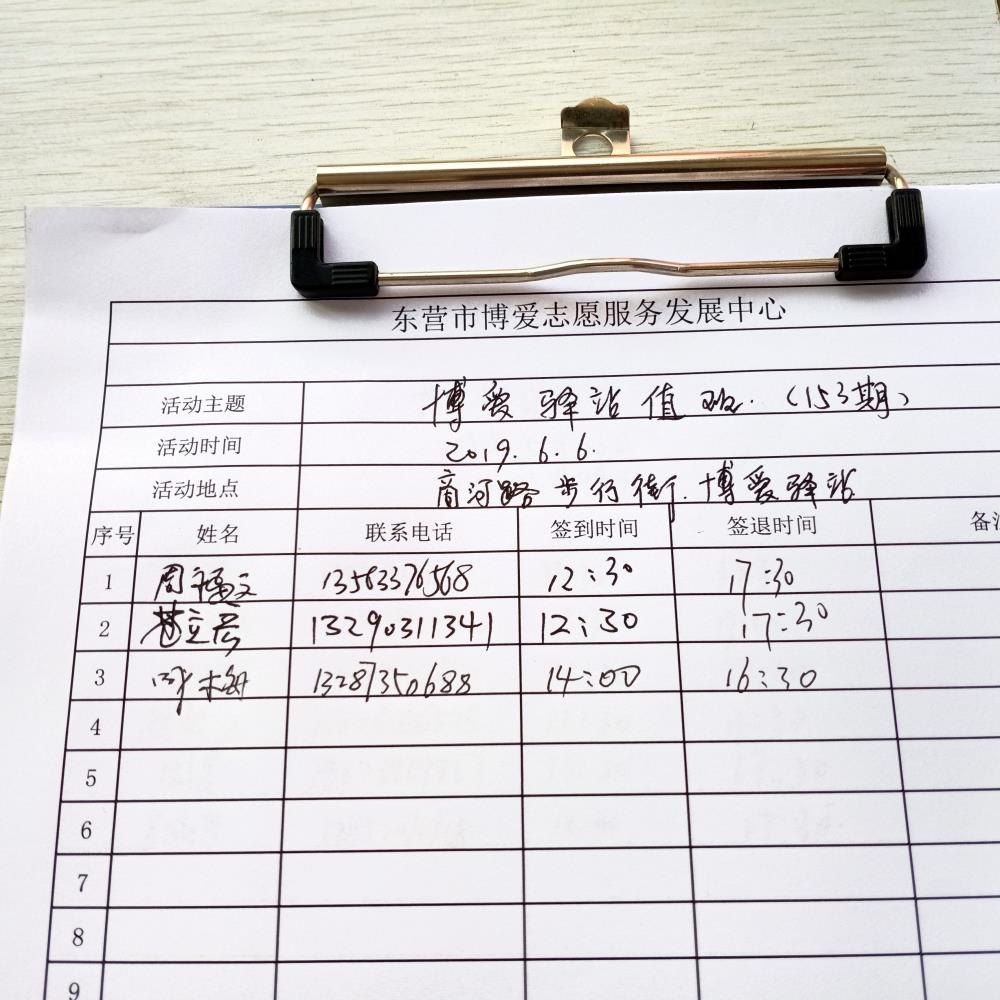 东营市博爱志愿服务发展中心
活动主题 博爱驿站值班.（153期）
活动时间 2019.6.6.
活动地点 商河路步行街.博爱驿站
序号 姓名 联系电话 签到时间 签退时间 备注
1 周福文 13563376568 12:30 17:30
2 13290311341 12:30 17:30
3 13287350688 14:00 16:30
4
5
6
7
8
9